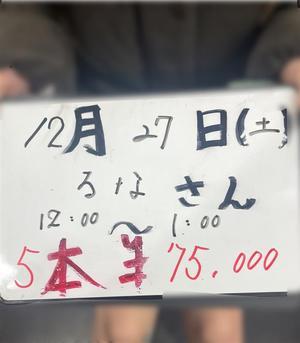 12月 27日(土)
るなさん
12:00〜1:00
5本半 75.000